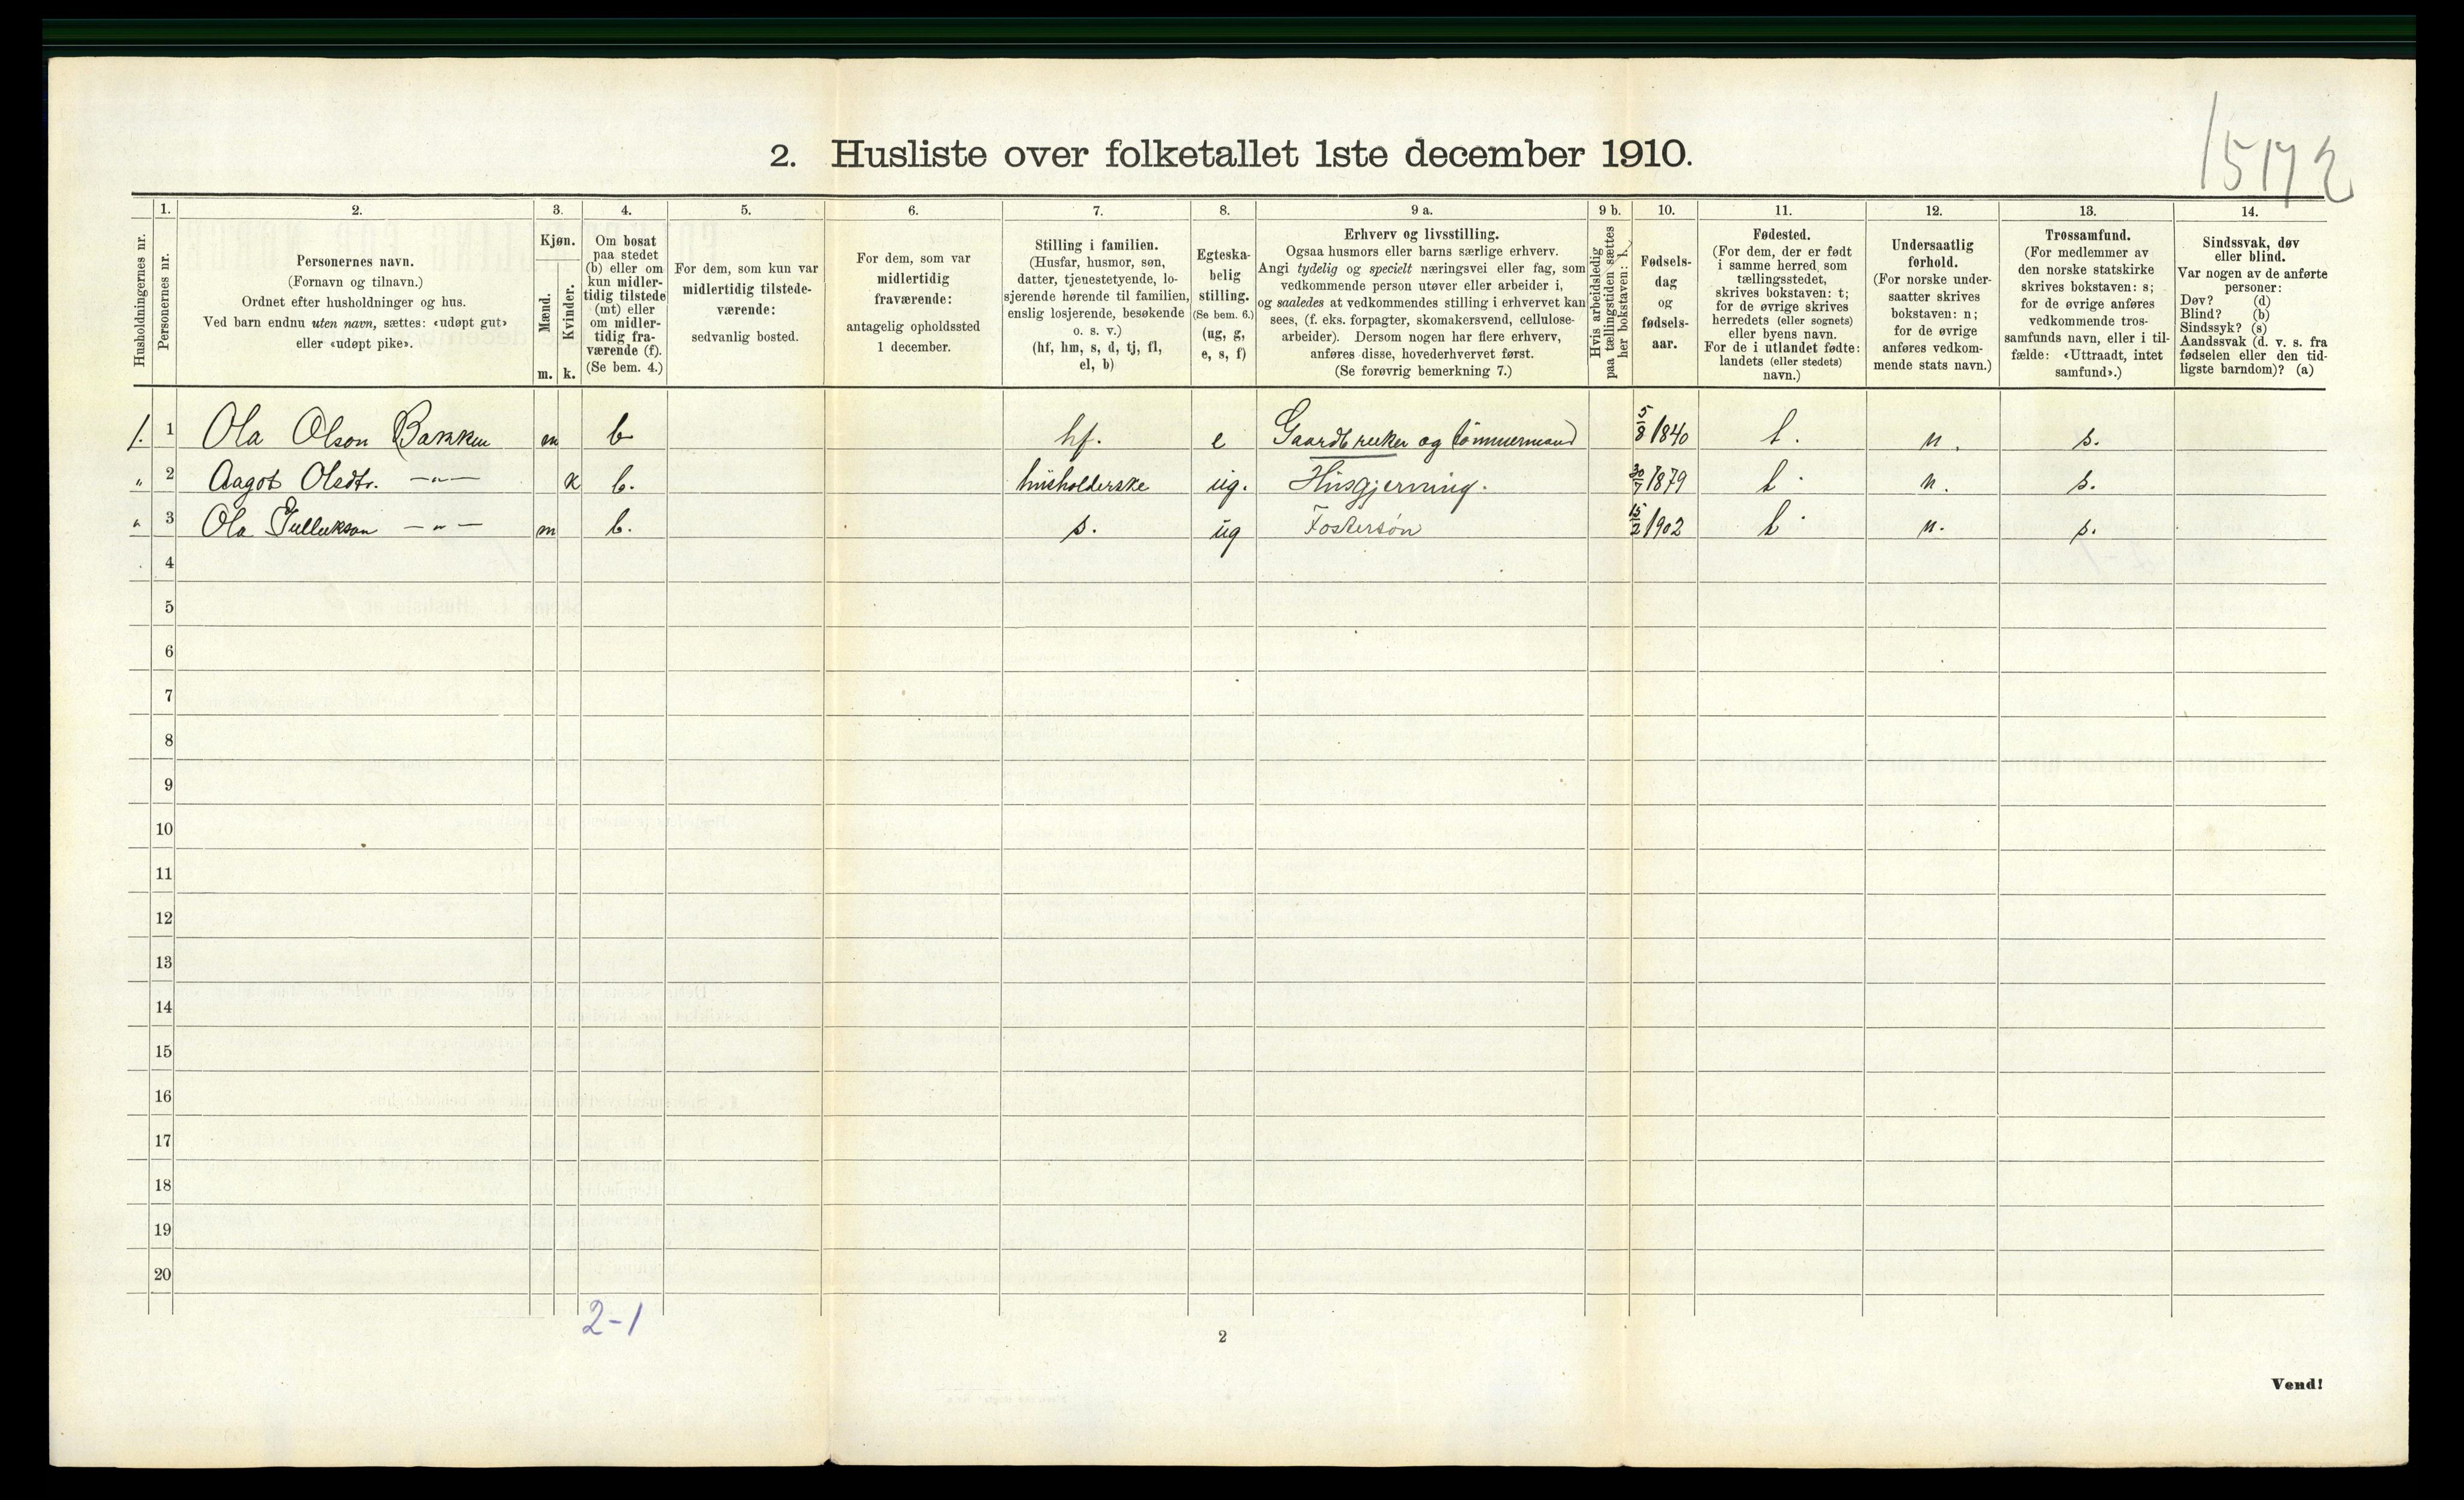 15172
2. Husliste over folketallet 1ste december 1910.
Husholdningernes nr.
1.
Personernes nr.
2.
Personernes navn.
(Fornavn og tilnavn.)
Ordnet efter husholdninger og hus.
Ved barn endnu uten navn, sættes: «udøpt gut»
eller «udøpt pike».
3.
Kjøn.
Mænd.
Kvinder.
m. k.
4.
Om bosat
paa stedet
(b) eller om
kun midler-
tidig tilstede
(mt) eller
om midler-
tidig fra-
værende (f).
(Se bem. 4.)
5.
For dem, som kun var
midlertidig tilstede-
værende:
sedvanlig bosted.
6.
For dem, som var
midlertidig
fraværende:
antagelig opholdssted
1 december.
7.
Stilling i familien.
(Husfar, husmor, søn,
datter, tjenestetyende, lo-
sjerende hørende til familien,
enslig losjerende, besøkende
o. s. v.)
(hf, hm, s, d, tj, fl,
el, b)
8.
Egteska-
belig
stilling.
(Se bem. 6.)
(ug, g,
e, s, f)
9 a.
Erhverv og livsstilling.
Ogsaa husmors eller barns særlige erhverv.
Angi tydelig og specielt næringsvei eller fag, som
vedkommende person utøver eller arbeider i,
og saaledes at vedkommendes stilling i erhvervet kan
sees, (f. eks. forpagter, skomakersvend, cellulose-
arbeider). Dersom nogen har flere erhverv,
anføres disse, hovederhvervet først.
(Se forøvrig bemerkning 7.)
9 b.
Hvis arbeidsledig
paa tællingstiden sættes
her bokstaven: k.
10.
Fødsels-
dag
og
fødsels-
aar.
11.
Fødested.
(For dem, der er født
i samme herred som
tællingsstedet,
skrives bokstaven: t;
for de øvrige skrives
herredets (eller sognets)
eller byens navn.
For de i utlandet fødte:
landets (eller stedets)
navn.)
12.
Undersaatlig
forhold.
(For norske under-
saatter skrives
bokstaven: n;
for de øvrige
anføres vedkom-
mende stats navn.)
13.
Trossamfund.
(For medlemmer av
den norske statskirke
skrives bokstaven: s;
for de øvrige anføres
vedkommende tros-
samfunds navn, eller i til-
fælde: «Uttraadt, intet
samfund».)
14.
Sindssvak, døv
eller blind.
Var nogen av de anførte
personer:
Døv? (d)
Blind? (b)
Sindssyk? (s)
Aandssvak (d. v. s. fra
fødselen eller den tid-
ligste barndom)? (a)
1. 1 Ola Olson Bakken m b hf. e Gaardbruker og tømmermand 5/8 1840 t. n. s.
" 2 Aagot Olsdtr. —"— k b. husholderske ug. Husgjerning. 30/7 1879 t. n. s.
" 3 Ola Gulleikson —"— m b. s. ug Fostersøn 15/2 1902 t. n. s.
4
5
6
7
8
9
10
11
12
13
14
15
16
17
18
19
20
2-1
2
Vend!